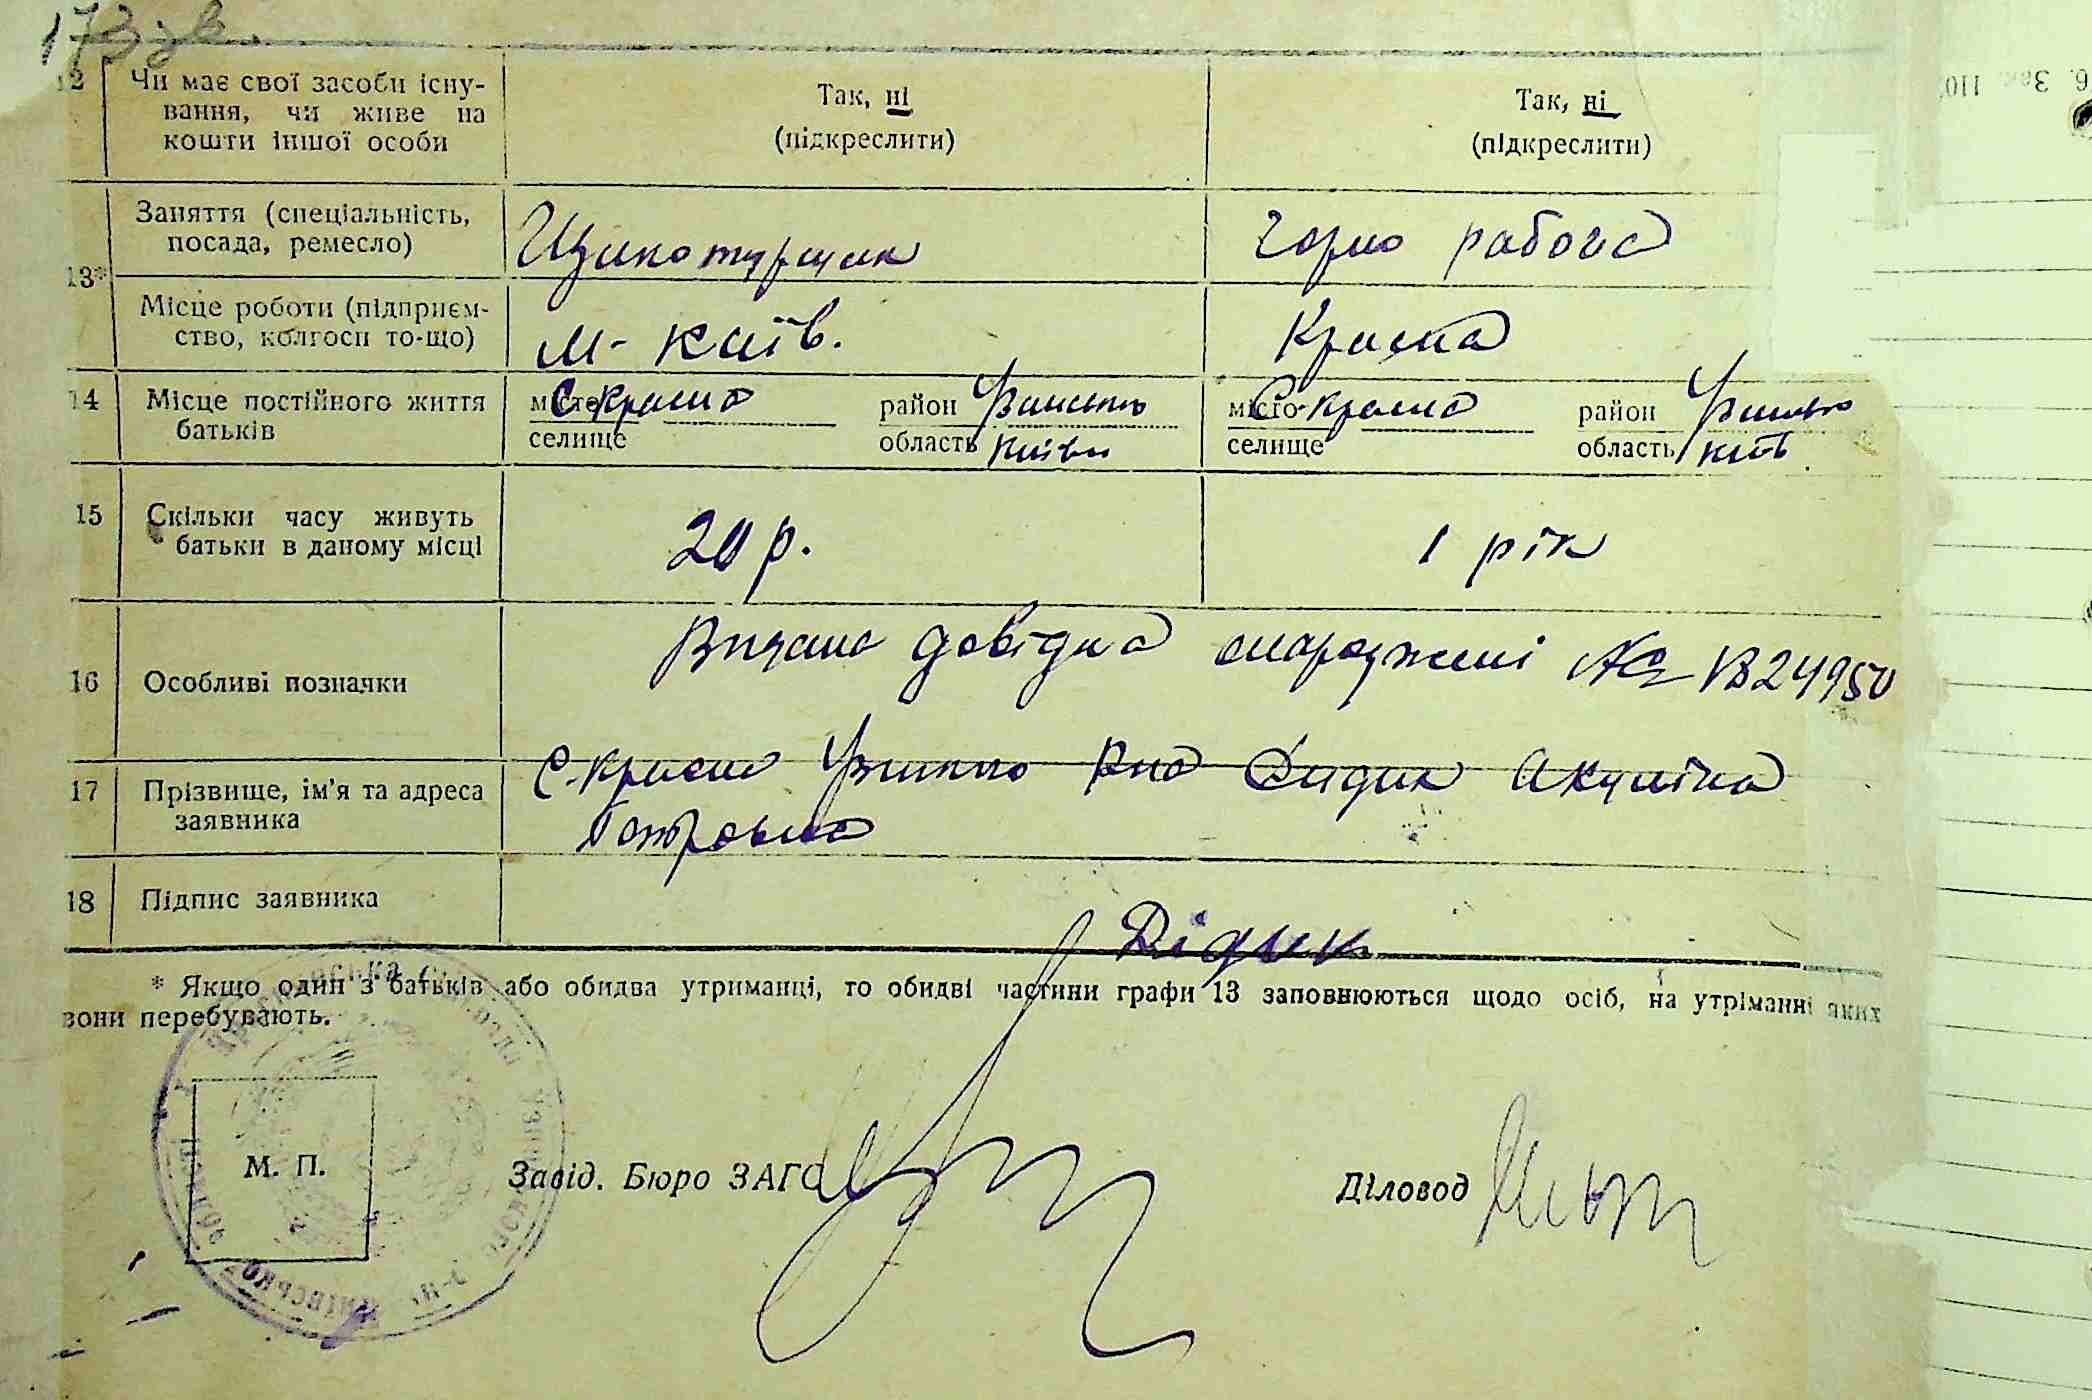 173 зв.
12 Чи має свої засоби існу-
вання, чи живе на
кошти іншої особи
Так, ні
(підкреслити)
Так, ні
(підкреслити)
13*
Заняття (спеціальність,
посада, ремесло)
Щикотурщик
Чорно робоча
Місце роботи (підприєм-
ство, колгосп то-що)
м- Київ.
Красна
14 Місце постійного життя
батьків
місто С. Красна район
селище область Київ
місто С. Красна район
селище область Київ
15 Скільки часу живуть
батьки в даному місці
20 р.
1 рік
16 Особливі позначки
Видана довідка № 1824950
17 Прізвище, ім'я та адреса
заявника
С. Красна Дидик Акуліна
Петровна
18 Підпис заявника
Дідик
* Якщо один з батьків або обидва утриманці, то обидві частини графи 13 заповнюються щодо осіб, на утріманні яких
вони перебувають.
М. П.
Завід. Бюро ЗАГС
Діловод